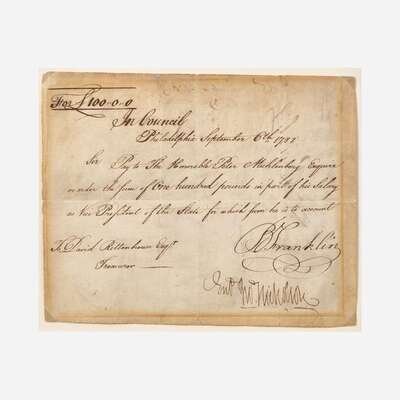 For £100-0-0
In Council
Philadelphia September 6th 1788
Sir Pay to The Honorable Peter Muchlenberg Esquire
or order the sum of One hundred pounds in part of his Salary
as Vice President of the State for which sum he is to account
B Franklin
To David Rittenhouse Esqr.
Treasurer
Entd. Jno. Nicholson